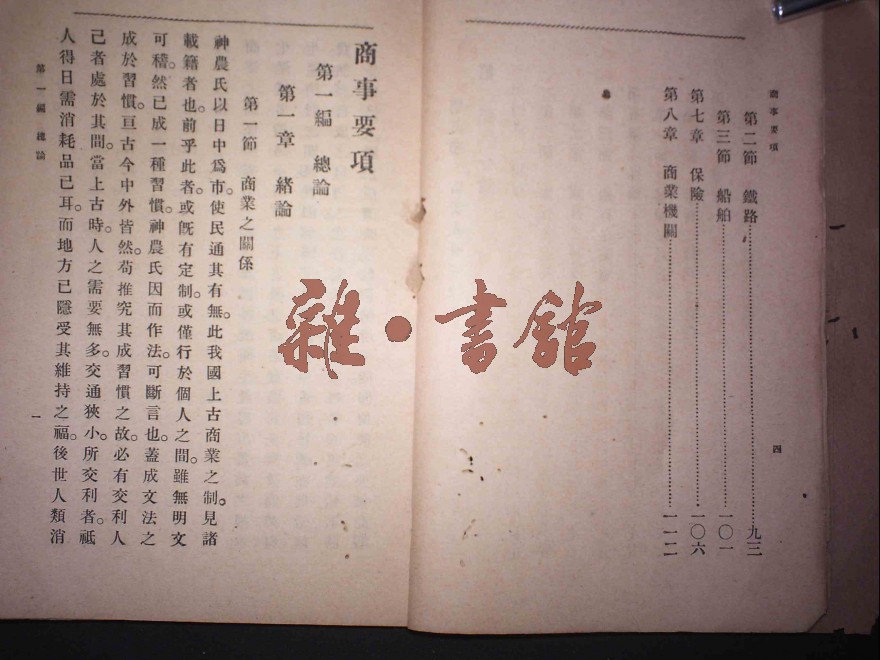 商事要項
四
第二節 鐵路……………………九三
第三節 船舶……………………一〇一
第七章 保險……………………一〇六
第八章 商業機關……………………一一二
商事要項
第一編 總論
第一章 緒論
第一節 商業之關係
神農氏以日中爲市。使民通其有無。此我國上古商業之制。見諸
載籍者也。前乎此者。或旣有定制。或僅行於個人之間。雖無明文
可稽。然已成一種習慣。神農氏因而作法。可斷言也。蓋成文法之
成於習慣。亘古今中外皆然。苟推究其成習慣之故。必有交利人
己者處於其間。當上古時。人之需要無多。交通狹小。所交利者。祗
人得日需消耗品已耳。而地方已隱受其維持之福。後世人類消
第一編 總論
一
雜·書館